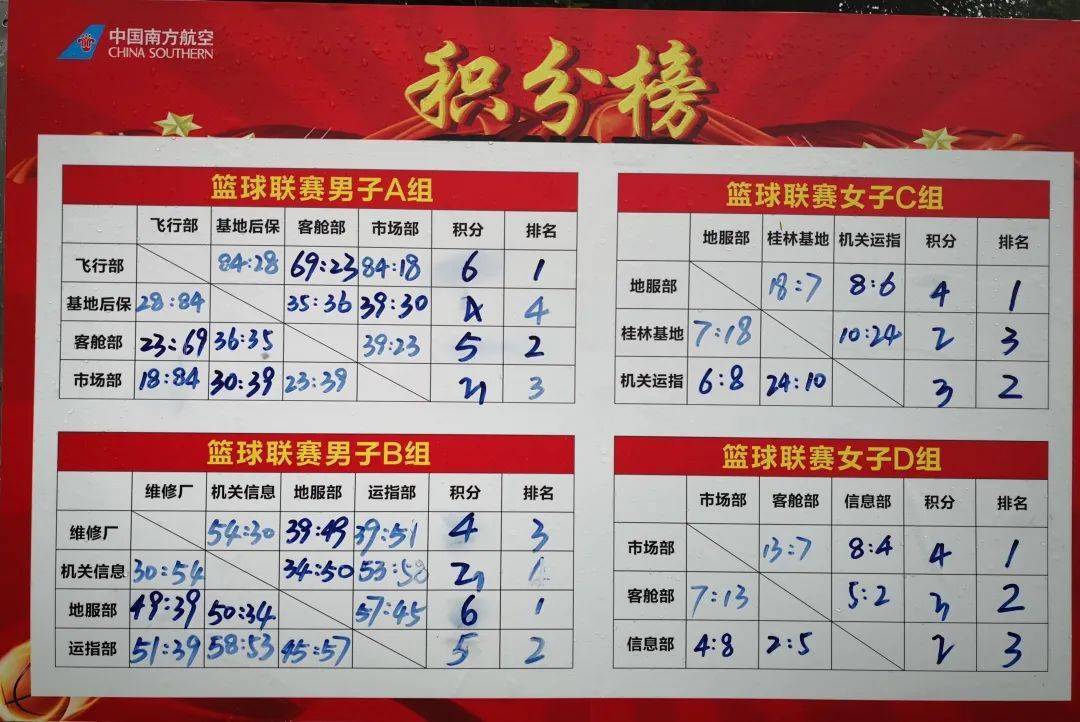 中国南方航空
CHINA SOUTHERN
积分榜
篮球联赛男子A组
飞行部 基地后保 客舱部 市场部 积分 排名
飞行部 84:28 69:23 84:18 6 1
基地后保 28:84 35:36 39:30 4 4
客舱部 23:69 36:35 39:23 5 2
市场部 18:84 30:39 23:39 3
篮球联赛女子C组
地服部 桂林基地 机关运指 积分 排名
地服部 18:7 8:6 4 1
桂林基地 7:18 10:24 2 3
机关运指 6:8 24:10 3 2
篮球联赛男子B组
维修厂 机关信息 地服部 运指部 积分 排名
维修厂 54:30 39:49 39:51 4 3
机关信息 30:54 34:50 53:58
地服部 49:39 50:34 57:45 6 1
运指部 51:39 58:53 45:57 5 2
篮球联赛女子D组
市场部 客舱部 信息部 积分 排名
市场部 13:7 8:4 4 1
客舱部 7:13 5:2 3 2
信息部 4:8 2:5 2 3